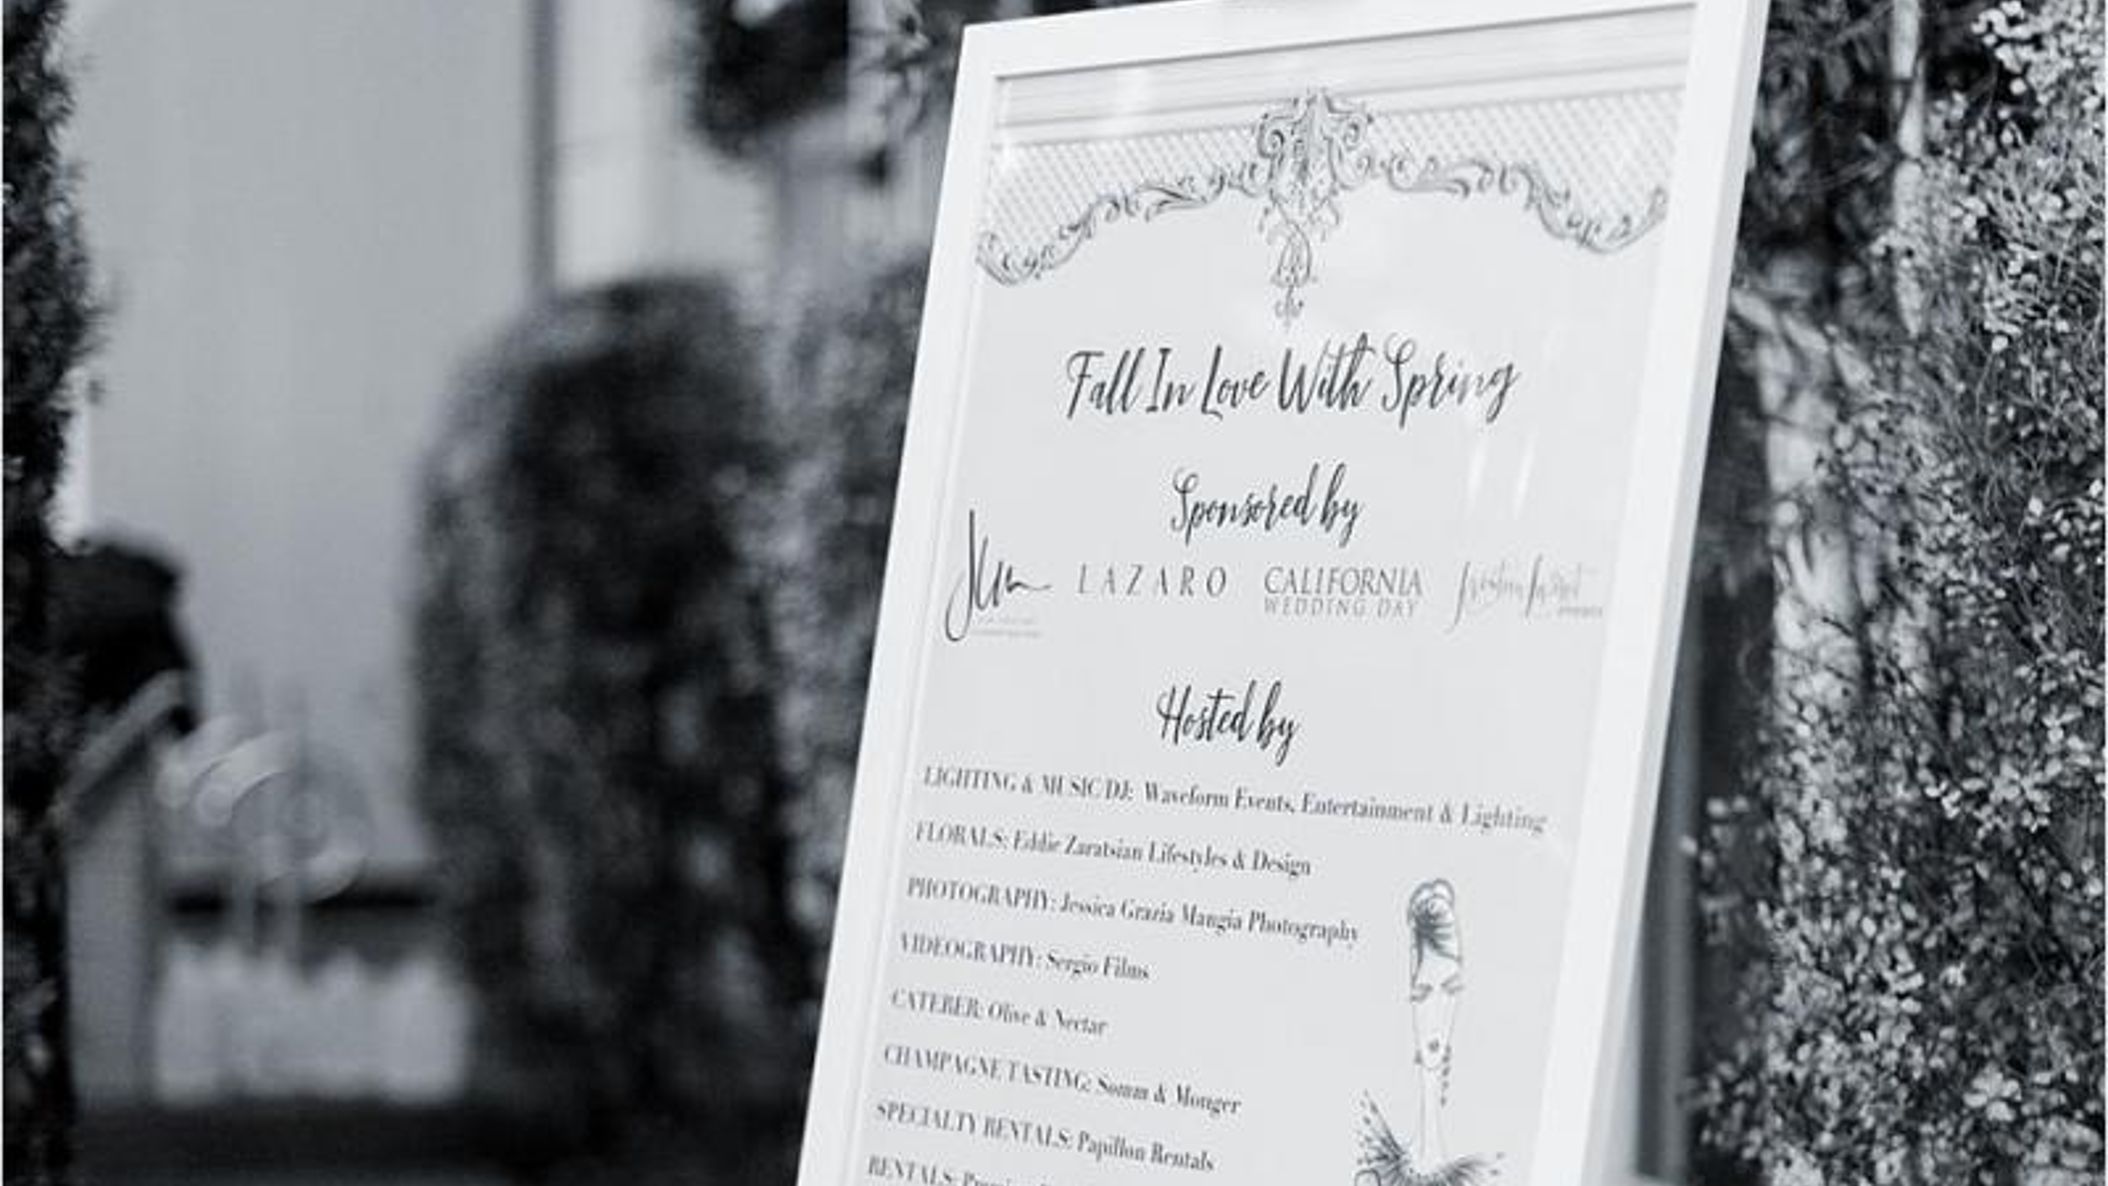 Fall In Love With Spring
Sponsored by
LAZARO
CALIFORNIA
WEDDING DAY
Hosted by
LIGHTING & MUSIC DJ: Waveform Events, Entertainment & Lighting
FLORALS: Eddie Zaratsian Lifestyles & Design
PHOTOGRAPHY: Jessica Grazia Mangia Photography
VIDEOGRAPHY: Sergio Films
CATERER: Olive & Nectar
CHAMPAGNE TASTING: Somm & Monger
SPECIALTY RENTALS: Papillon Rentals
RENTALS: